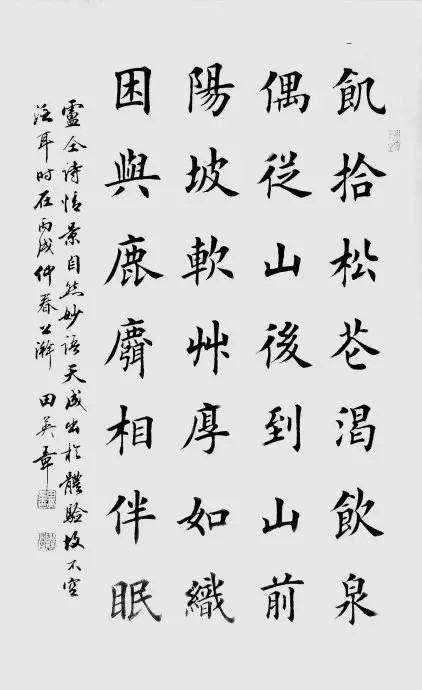 飢拾松花渴飲泉
偶從山後到山前
陽坡軟艸厚如織
困與鹿麛相伴眠
盧仝詩情景自然妙語天成出於體驗故不空
泛耳時在丙戌仲春上澣 田英章